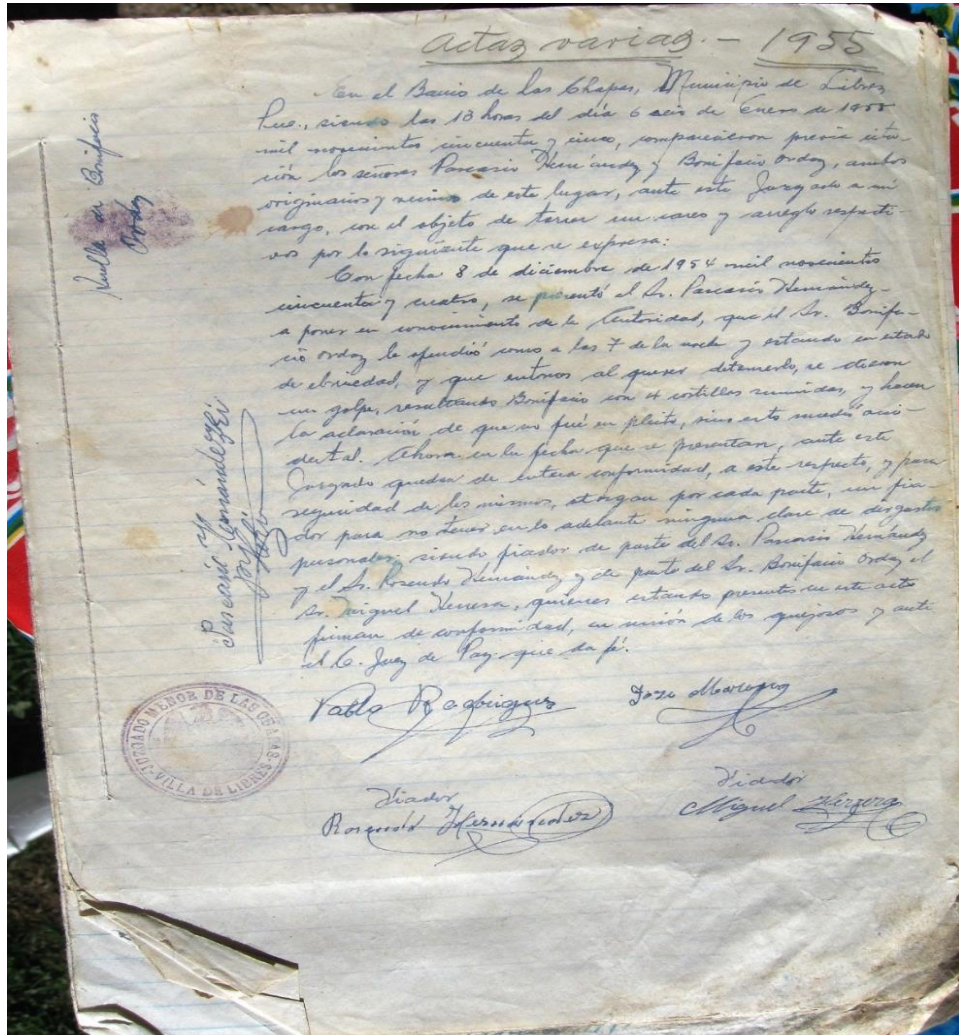 Actas varias. - 1955
En el Barrio de Las Chapas, Municipio de Libres
Pue., siendo las 13 horas del día 6 seis de Enero de 1955
mil novecientos cincuenta y cinco, comparecieron previa cita-
ción los señores Pascasio Hernández y Bonifacio Ordaz, ambos
originarios y vecinos de este lugar, ante este Juzgado a mi
cargo, con el objeto de tener un careo y arreglo respecti-
vos por lo siguiente que se expresa:
Con fecha 8 de diciembre de 1954 mil novecientos
cincuenta y cuatro, se presentó el Sr. Pascasio Hernández
a poner en conocimiento de la Autoridad, que el Sr. Bonifa-
cio Ordaz le ofendió como a las 7 de la noche y estando en estado
de ebriedad, y que entonces al querer detenerlo, se
un golpe, resultando Bonifacio con 4 costillas sumidas, y hacen
la aclaración de que no fué en pleito, sino esto medio acci-
dental. Ahora en la fecha que se presentan, ante este
Juzgado quedan de entera conformidad, a este respecto, y para
seguridad de los mismos, otorgan por cada parte, un fia-
dor para no tener en lo adelante ninguna clase de disgustos
personales; siendo fiador de parte del Sr. Pascasio Hernández
y el Sr. Rosendo Hernández y de parte del Sr. Bonifacio Ordaz el
Sr. Miguel Herrera, quienes estando presentes en este acto
firman de conformidad, en unión de los quejosos y ante
el C. Juez de Paz que da fé.
Pablo Rodriguez
Fiador
Rosendo Hernandez
Fiador
Miguel Herrera
Huella de Bonifacio
Ordaz
Pascasio Hernández
JUZGADO MENOR DE LAS CHAPAS
VILLA DE LIBRES